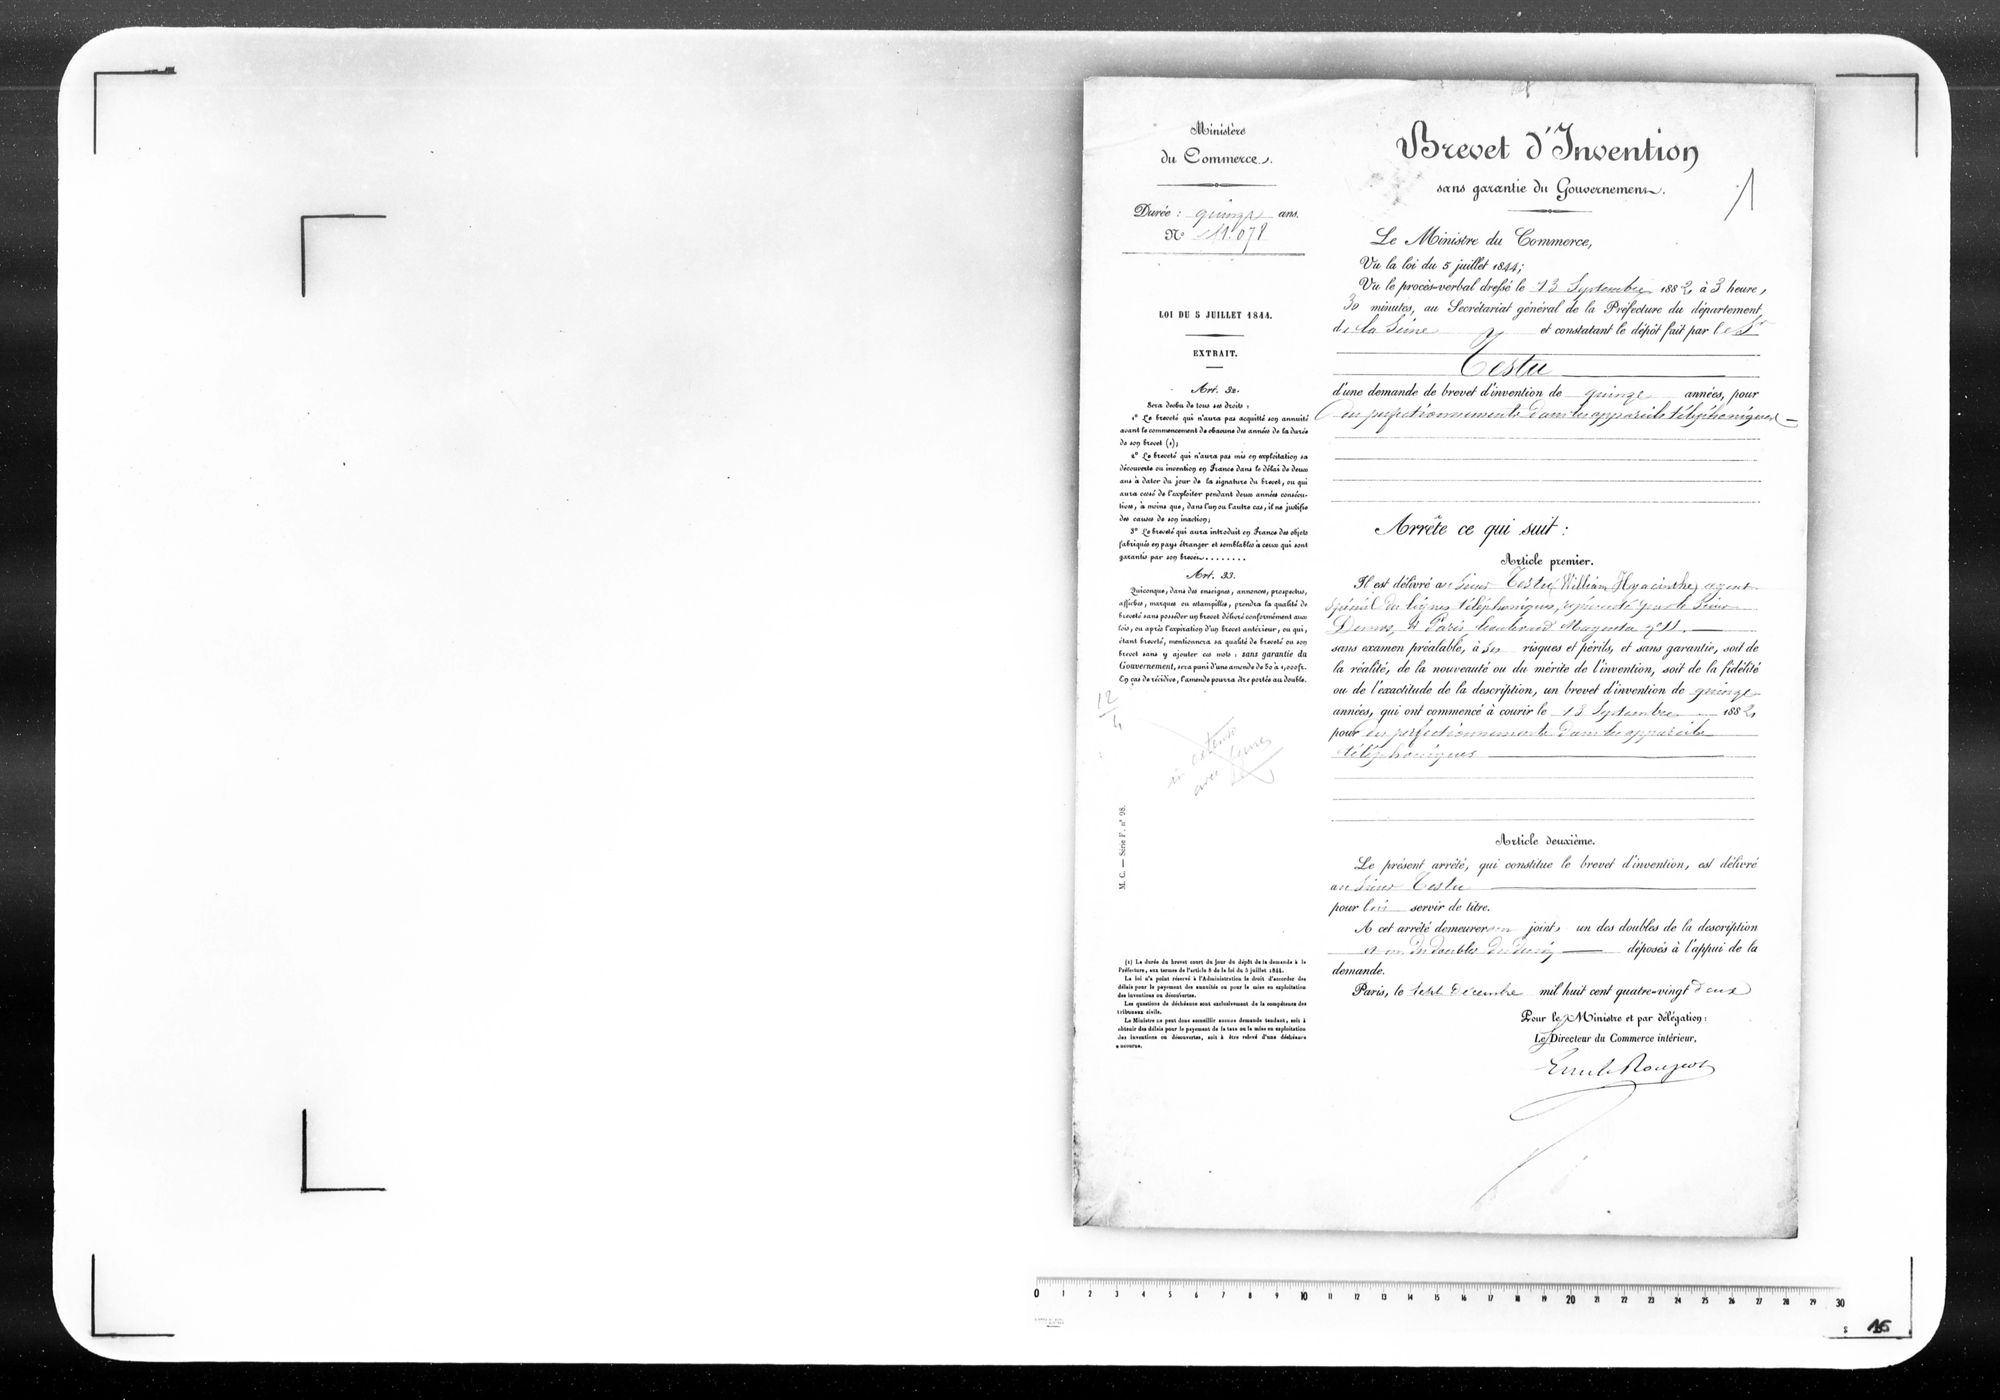 Ministère
du Commerce.
Durée : quinze ans.
N°
LOI DU 5 JUILLET 1844.
EXTRAIT.
Art. 32.
Sera déchu de tous ses droits :
1° Le breveté qui n'aura pas acquitté son annuité
avant le commencement de chacune des années de la durée
de son brevet (1);
2° Le breveté qui n'aura pas mis en exploitation sa
découverte ou invention en France dans le délai de deux
ans à dater du jour de la signature du brevet, ou qui
aura cessé de l'exploiter pendant deux années consécu-
tives, à moins que, dans l'un ou l'autre cas, il ne justifie
des causes de son inaction;
3° Le breveté qui aura introduit en France des objets
fabriqués en pays étranger et semblables à ceux qui sont
garantis par son brevet........
Art. 33.
Quiconque, dans des enseignes, annonces, prospectus,
affiches, marques ou estampilles, prendra la qualité de
breveté sans posséder un brevet délivré conformément aux
lois, ou après l'expiration d'un brevet antérieur, ou qui,
étant breveté, mentionnera sa qualité de breveté ou son
brevet sans y ajouter ces mots : sans garantie du
Gouvernement, sera puni d'une amende de 50 à 1,000 fr.
En cas de récidive, l'amende pourra être portée au double.
12
4
in extenso
avec
M. C. — Série F, n° 98.
(1) La durée du brevet court du jour du dépôt de la demande à la
Préfecture, aux termes de l'article 8 de la loi du 5 juillet 1844.
La loi n'a point réservé à l'Administration le droit d'accorder des
délais pour le payement des annuités ou pour la mise en exploitation
des inventions ou découvertes.
Les questions de déchéance sont exclusivement de la compétence des
tribunaux civils.
Le Ministre ne peut donc accueillir aucune demande tendant, soit à
obtenir des délais pour le payement de la taxe ou la mise en exploitation
des inventions ou découvertes, soit à être relevé d'une déchéance
encourue.
Brevet d'Invention
sans garantie du Gouvernement.
1
Le Ministre du Commerce,
Vu la loi du 5 juillet 1844;
Vu le procès-verbal dressé le 13 Septembre 1882 à 3 heures
30 minutes, au Secrétariat général de la Préfecture du département
de la Seine et constatant le dépôt fait par le Sr
Testu
d'une demande de brevet d'invention de quinze années, pour
des perfectionnements dans les appareils téléphoniques
Arrête ce qui suit :
Article premier.
Il est délivré au Sieur Testu (William Hyacinthe) agent
spécial des lignes téléphoniques, représenté par le Sieur
à Paris boulevard Magenta n° 11.
sans examen préalable, à ses risques et périls, et sans garantie, soit de
la réalité, de la nouveauté ou du mérite de l'invention, soit de la fidélité
ou de l'exactitude de la description, un brevet d'invention de quinze
années, qui ont commencé à courir le 13 Septembre 1882
pour des perfectionnements dans les appareils
téléphoniques
Article deuxième.
Le présent arrêté, qui constitue le brevet d'invention, est délivré
au Sieur Testu
pour lui servir de titre.
A cet arrêté demeureront joints un des doubles de la description
et un des doubles du dessin déposés à l'appui de la
demande.
Paris, le sept Décembre mil huit cent quatre-vingt deux
Pour le Ministre et par délégation :
Le Directeur du Commerce intérieur,
0 1 2 3 4 5 6 7 8 9 10 11 12 13 14 15 16 17 18 19 20 21 22 23 24 25 26 27 28 29 30
16